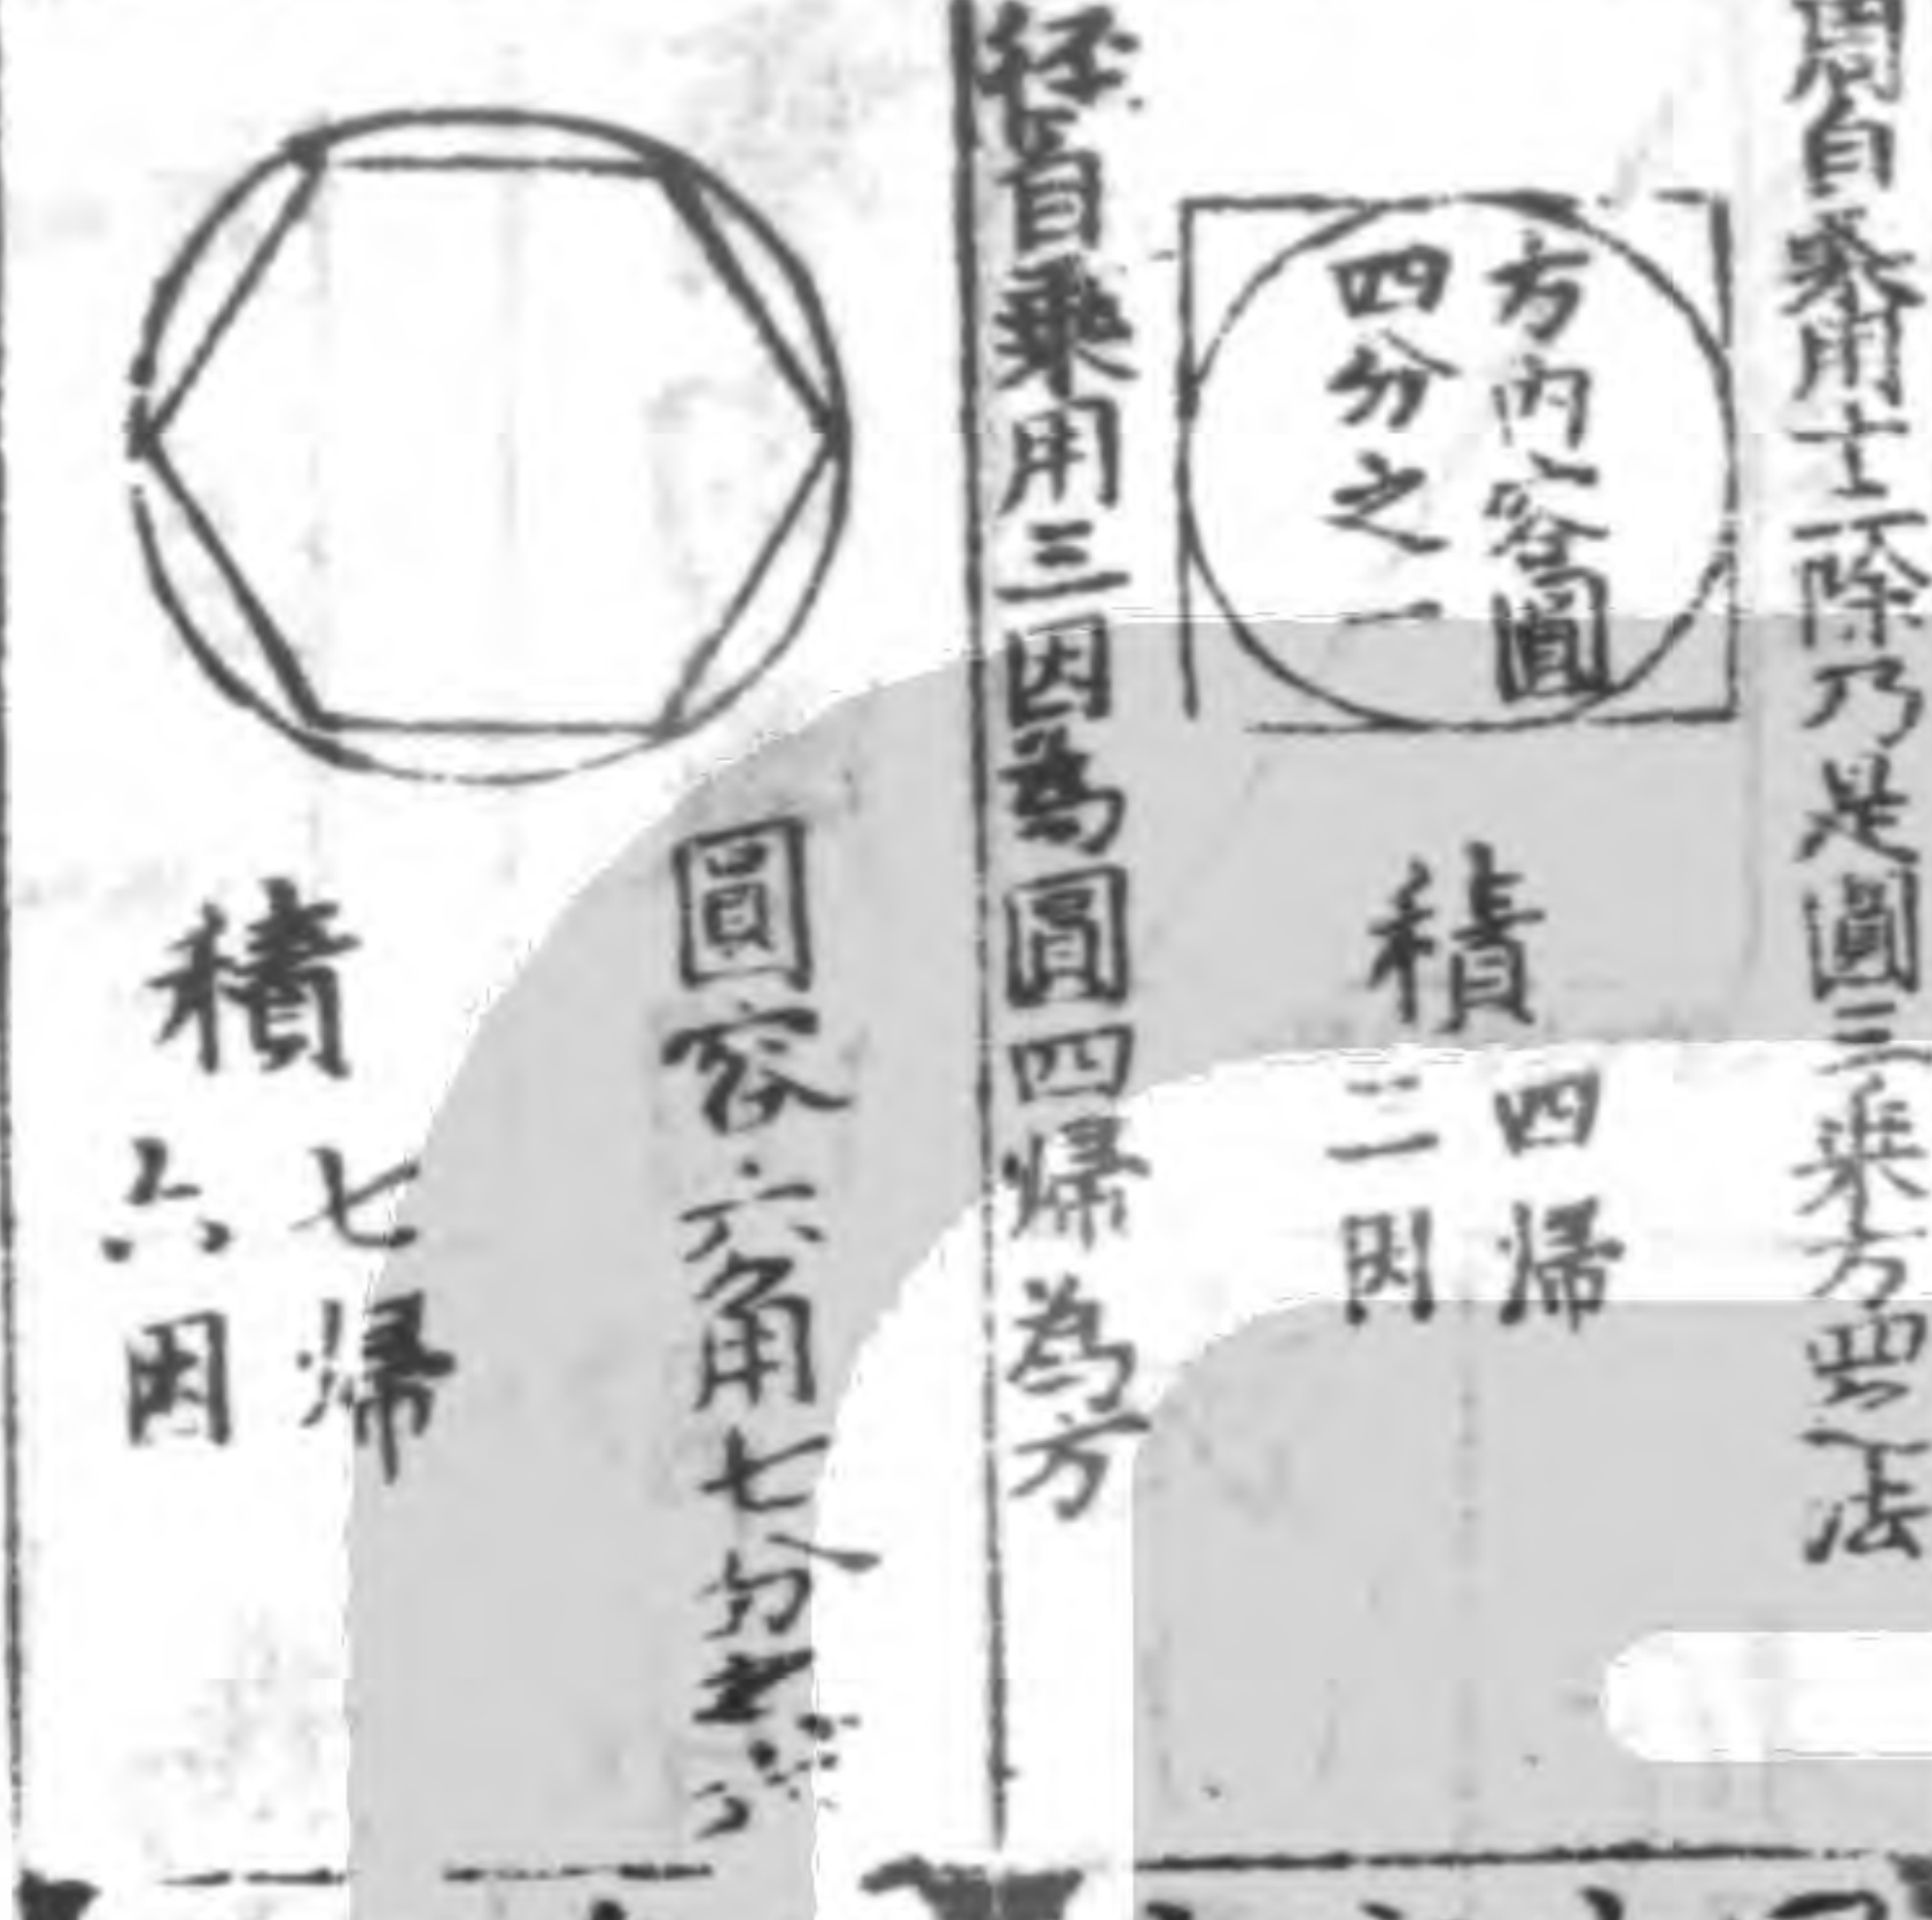 周自乘用十二除乃是圓三乘方四法
方內容圓
四分之一
積
四歸
三因
徑自乘用三因為圓四歸為方
圓容六角七分之
積
七歸
六因